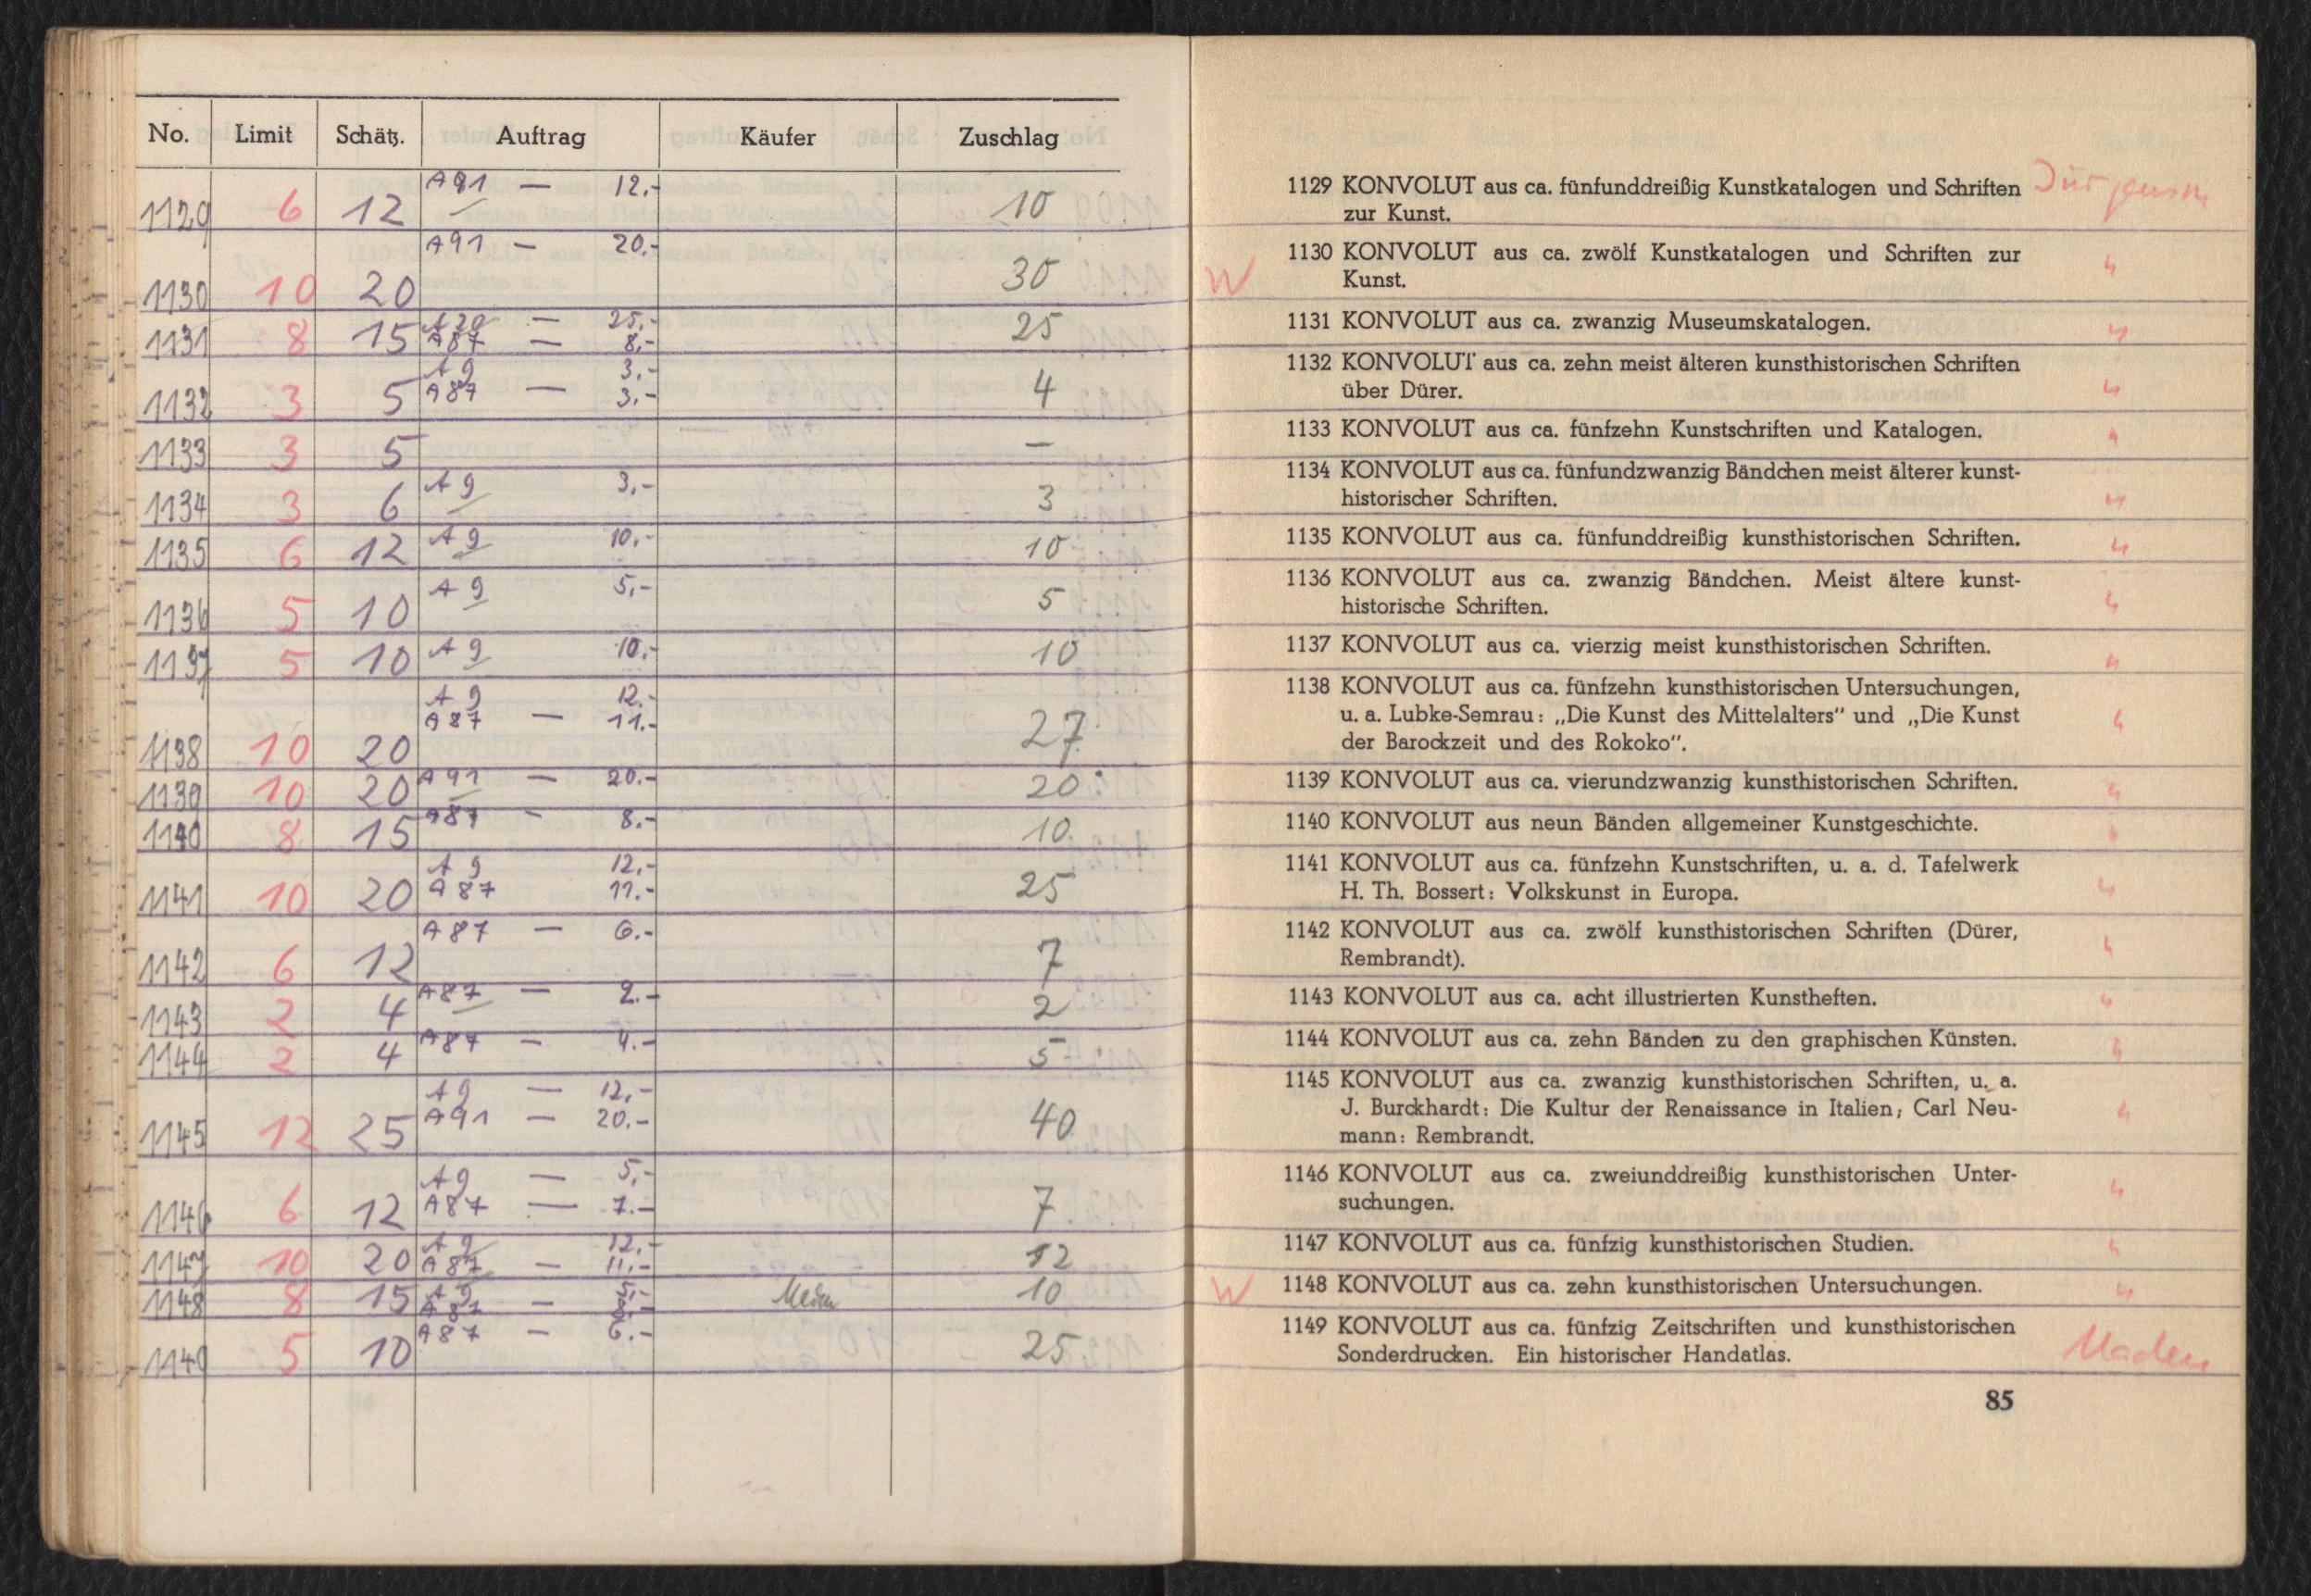 No. Limit Schätz. Auftrag Käufer Zuschlag
A91 — 12.-
1129 6 12 10
A91 — 20.-
1130 10 20 30
A20 — 25.-
1131 8 15 A87 — 8.- 25
A9 3.-
1132 3 5 A87 — 3.- 4
1133 3 5 —
1134 3 6 A9 3.- 3
1135 6 12 A9 10.- 10
1136 5 10 A9 5.- 5
1137 5 10 A9 10.- 10
A9 12.-
A87 — 11.-
1138 10 20 27
1139 10 20 A91 — 20.- 20
1140 8 15 A87 — 8.- 10
A9 12.-
1141 10 20 A87 11.- 25
A87 — 6.-
1142 6 12 7
1143 2 4 A87 — 2.- 2
1144 2 4 A87 — 4.- 5
A9 — 12.-
A91 — 20.-
1145 12 25 40
A9 — 5.-
1146 6 12 A87 — 7.- 7
A9 12.-
1147 10 20 A87 — 11.- 12
A9 5.-
1148 8 15 A87 — 8.- 10
A87 — 6.-
1149 5 10 25
1129 KONVOLUT aus ca. fünfunddreißig Kunstkatalogen und Schriften
zur Kunst.
W 1130 KONVOLUT aus ca. zwölf Kunstkatalogen und Schriften zur "
Kunst.
1131 KONVOLUT aus ca. zwanzig Museumskatalogen. "
1132 KONVOLUT aus ca. zehn meist älteren kunsthistorischen Schriften
über Dürer. "
1133 KONVOLUT aus ca. fünfzehn Kunstschriften und Katalogen. "
1134 KONVOLUT aus ca. fünfundzwanzig Bändchen meist älterer kunst-
historischer Schriften. "
1135 KONVOLUT aus ca. fünfunddreißig kunsthistorischen Schriften. "
1136 KONVOLUT aus ca. zwanzig Bändchen. Meist ältere kunst-
historische Schriften. "
1137 KONVOLUT aus ca. vierzig meist kunsthistorischen Schriften. "
1138 KONVOLUT aus ca. fünfzehn kunsthistorischen Untersuchungen,
u. a. Lubke-Semrau: „Die Kunst des Mittelalters" und „Die Kunst "
der Barockzeit und des Rokoko".
1139 KONVOLUT aus ca. vierundzwanzig kunsthistorischen Schriften. "
1140 KONVOLUT aus neun Bänden allgemeiner Kunstgeschichte. "
1141 KONVOLUT aus ca. fünfzehn Kunstschriften, u. a. d. Tafelwerk
H. Th. Bossert: Volkskunst in Europa. "
1142 KONVOLUT aus ca. zwölf kunsthistorischen Schriften (Dürer,
Rembrandt). "
1143 KONVOLUT aus ca. acht illustrierten Kunstheften. "
1144 KONVOLUT aus ca. zehn Bänden zu den graphischen Künsten. "
1145 KONVOLUT aus ca. zwanzig kunsthistorischen Schriften, u. a.
J. Burckhardt: Die Kultur der Renaissance in Italien; Carl Neu- "
mann: Rembrandt.
1146 KONVOLUT aus ca. zweiunddreißig kunsthistorischen Unter-
suchungen. "
1147 KONVOLUT aus ca. fünfzig kunsthistorischen Studien. "
W 1148 KONVOLUT aus ca. zehn kunsthistorischen Untersuchungen. "
1149 KONVOLUT aus ca. fünfzig Zeitschriften und kunsthistorischen
Sonderdrucken. Ein historischer Handatlas.
85